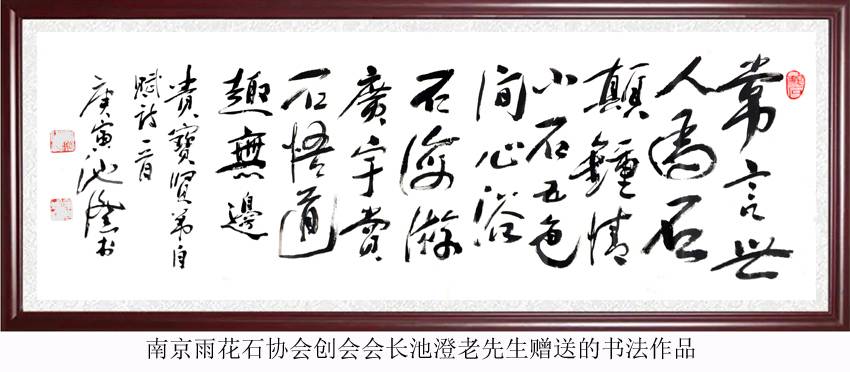 常言世
人為石
顛鍾情
小石五色
间心浴
石海游
廣宇賞
石悟道
趣無邊
貴寶賢弟自
賦詩一首
庚寅池澄书
南京雨花石协会创会会长池澄老先生赠送的书法作品